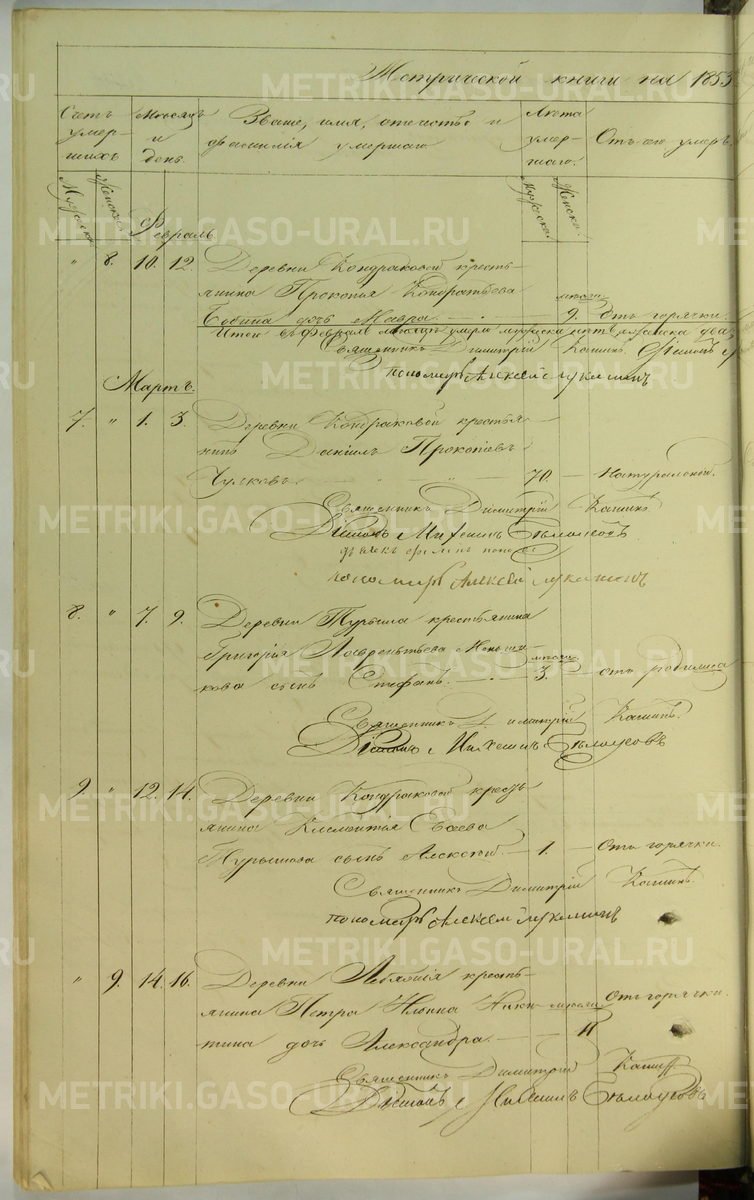 Метрической книги на 1853
Счетъ умер- шихъ
Мѣсяцъ и день.
Званіе, имя, отчество и фамилія умершаго
Лѣта умер- шаго.
Отъ чего умеръ
Мужска. Женска.
Мужска. Женска.
Февраль.
" 8. 10. 12. Деревни Кондраковой кресть-
янина Прокопія Кондратьева мѣсяц.
Бабина дочь Мавра. 9. Отъ горячки.
Итого въ Февралѣ мѣсяцѣ умерло мужеска женска два
Священникъ Димитрій Кашинъ.
пономарь Алексей Лукашинъ
Мартъ.
7. " 1. 3. Деревни Кондраковой крестья-
нинъ Даніилъ Прокопьевъ
Чулковъ. 70. Натуральной.
Священникъ Димитрій Кашинъ
Діаконъ Бѣлоусовъ
пономарь Алексей Лукашинъ
8. " 7. 9. Деревни Турыгина крестьянина
Григорія Лаврентьева Меньши- мѣсяц.
кова сынъ Стефанъ. 3. отъ родимца
Священникъ Димитрій Кашинъ.
Діаконъ Бѣлоусовъ
9. " 12. 14. Деревни Кондраковой кресть-
янина Климентія
сынъ Алексей. 1. Отъ горячки
Священникъ Димитрій Кашинъ
пономарь Алексей Лукашинъ
" 9. 14. 16. Деревни Лебяжія кресть-
янина Петра Ники- мѣсяц. Отъ горячки.
тина дочь Александра. 11
Священникъ Димитрій Кашинъ
Діаконъ Бѣлоусовъ
METRIKI.GASO-URAL.RU